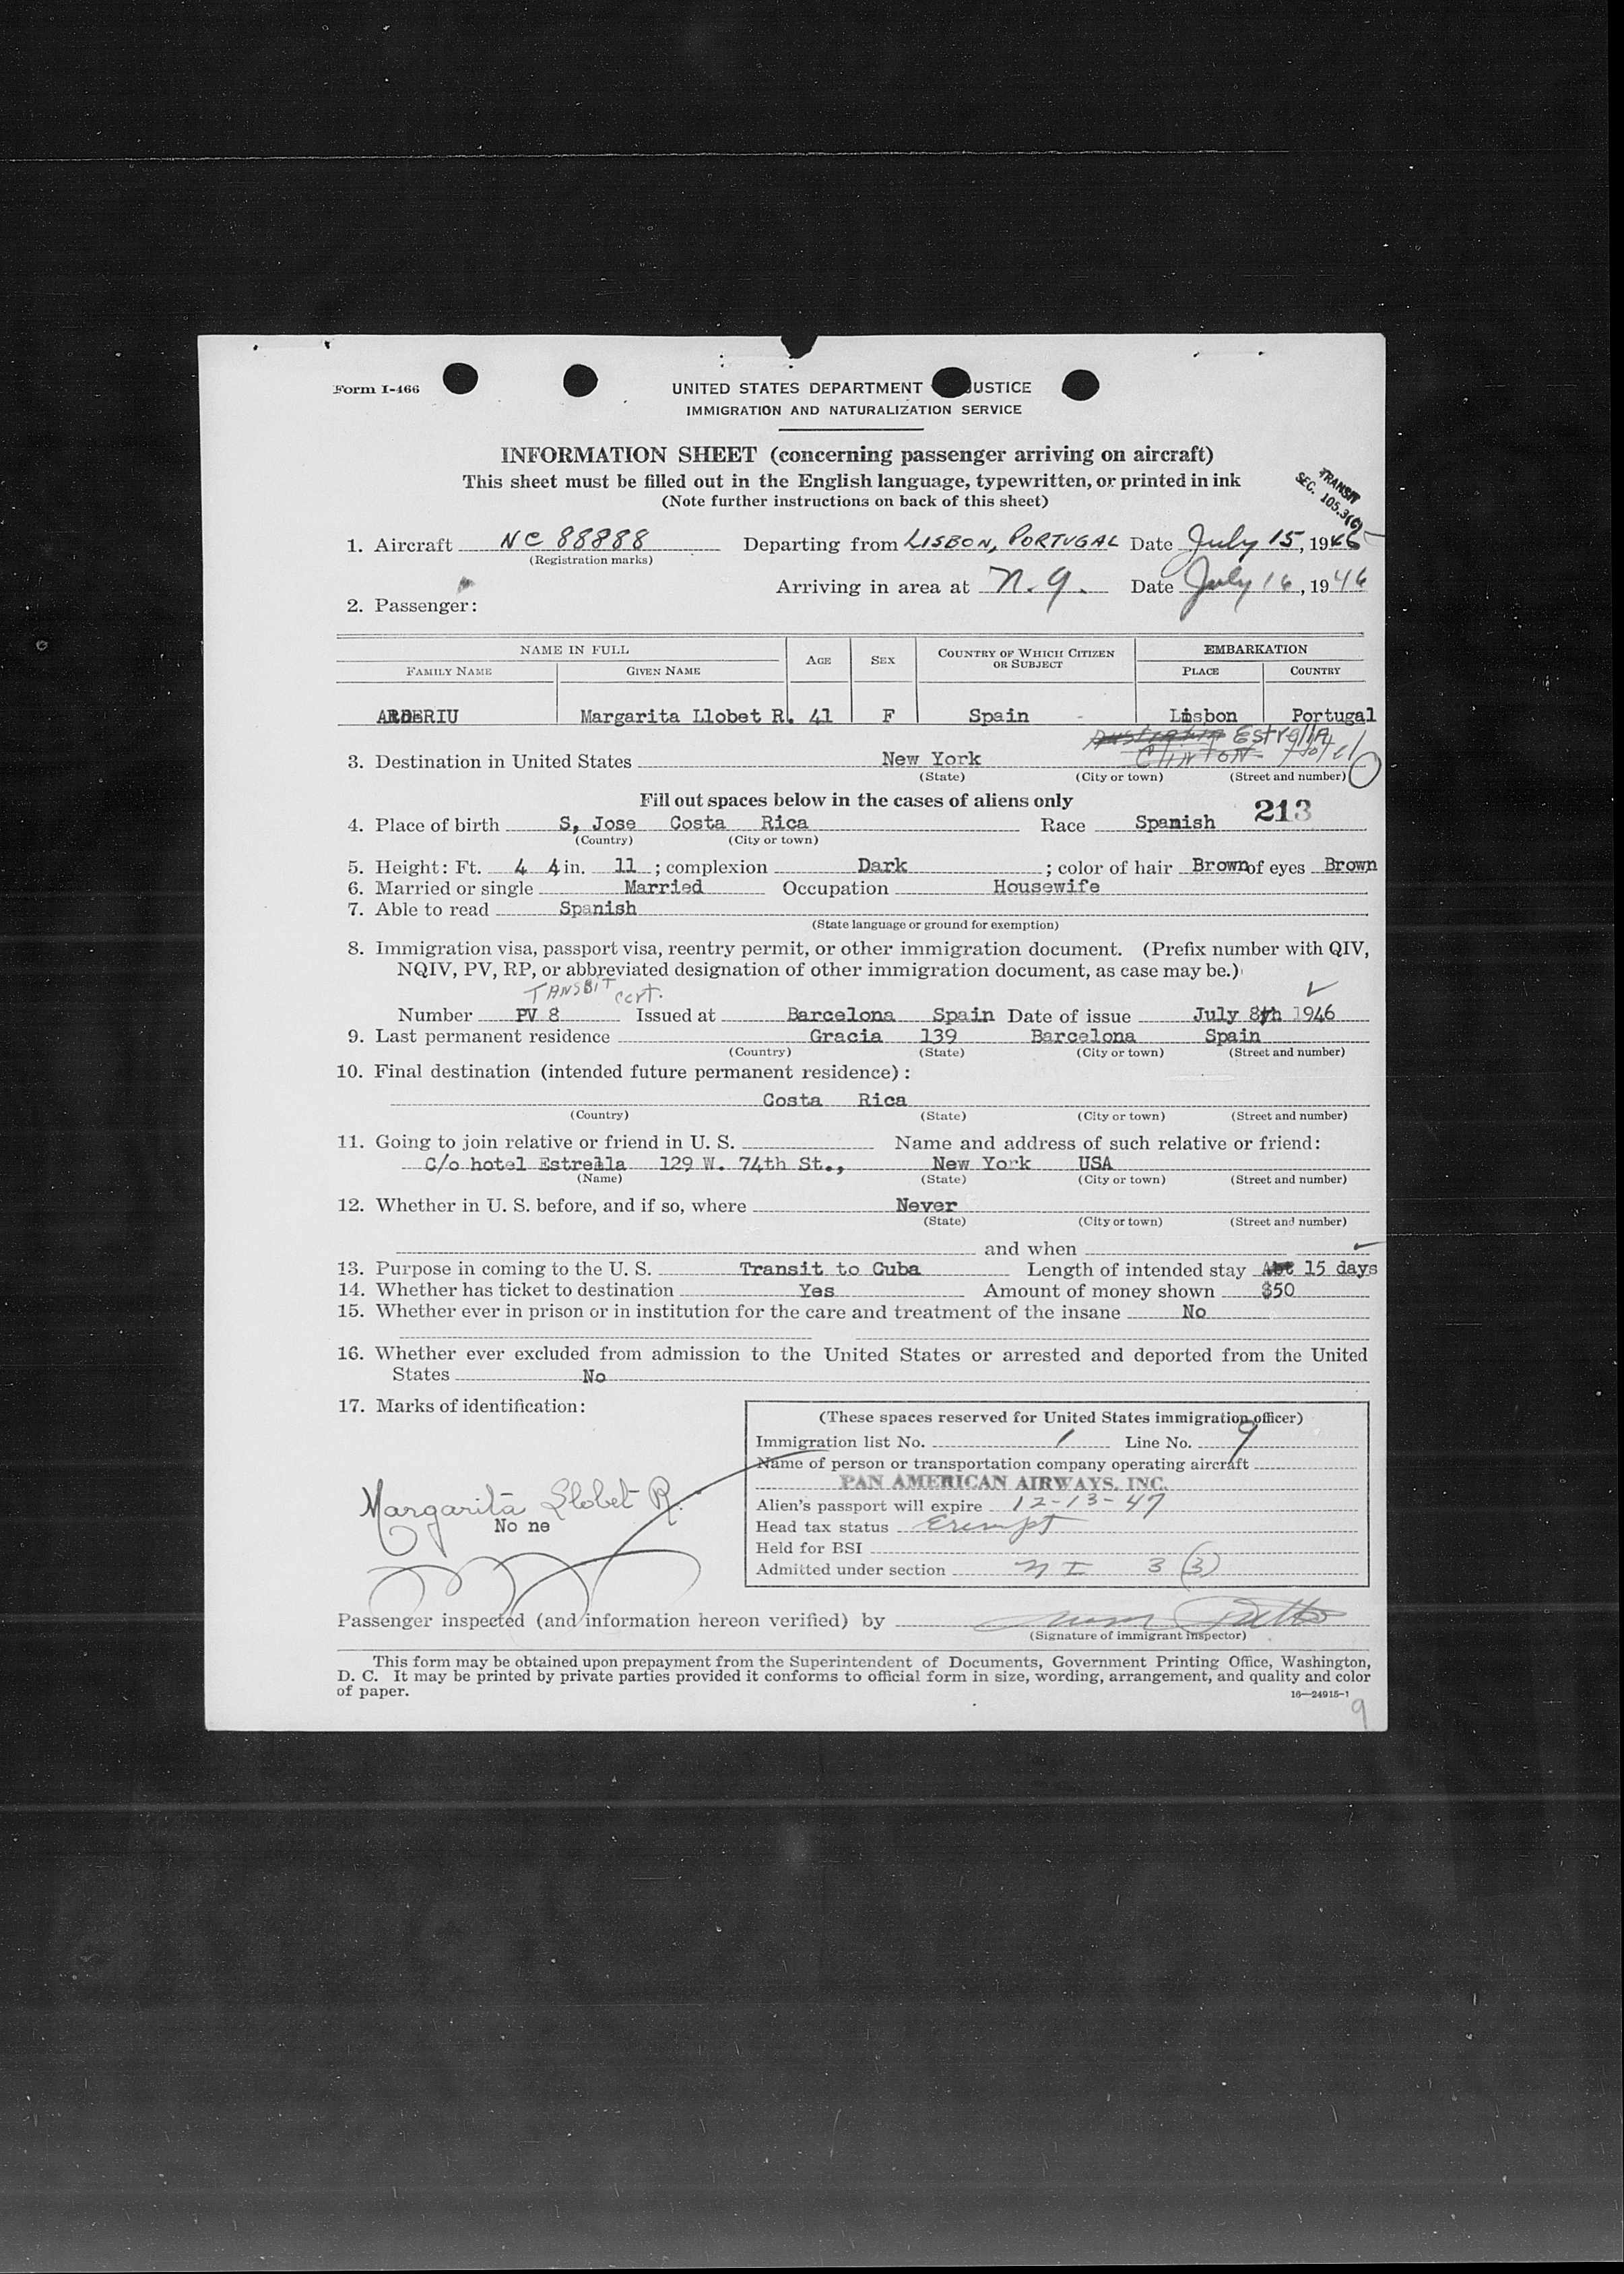 Form I-466
UNITED STATES DEPARTMENT JUSTICE
IMMIGRATION AND NATURALIZATION SERVICE
INFORMATION SHEET (concerning passenger arriving on aircraft)
This sheet must be filled out in the English language, typewritten, or printed in ink
(Note further instructions on back of this sheet)
TRANSIT
SEC. 105.3(c)
1. Aircraft NC 88888 Departing from LISBON, PORTUGAL Date July 15, 1946
(Registration marks)
Arriving in area at N.Y. Date July 16, 1946
2. Passenger:
NAME IN FULL AGE SEX COUNTRY OF WHICH CITIZEN OR SUBJECT EMBARKATION
FAMILY NAME GIVEN NAME PLACE COUNTRY
ARDERIU Margarita Llobet R. 41 F Spain - Lisbon Portugal
Estrella
CLINTON Hotel
3. Destination in United States New York
(State) (City or town) (Street and number)
Fill out spaces below in the cases of aliens only
213
4. Place of birth S, Jose Costa Rica Race Spanish
(Country) (City or town)
5. Height: Ft. 4 4 in. 11 ; complexion Dark ; color of hair Brown of eyes Brown
6. Married or single Married Occupation Housewife
7. Able to read Spanish
(State language or ground for exemption)
8. Immigration visa, passport visa, reentry permit, or other immigration document. (Prefix number with QIV,
NQIV, PV, RP, or abbreviated designation of other immigration document, as case may be.)
TANSBIT cert.
Number PV 8 Issued at Barcelona Spain Date of issue July 8th 1946
9. Last permanent residence Gracia 139 Barcelona Spain
(Country) (State) (City or town) (Street and number)
10. Final destination (intended future permanent residence):
Costa Rica
(Country) (State) (City or town) (Street and number)
11. Going to join relative or friend in U. S. Name and address of such relative or friend:
C/o hotel Estrella 129 W. 74th St., New York USA
(Name) (State) (City or town) (Street and number)
12. Whether in U. S. before, and if so, where Never
(State) (City or town) (Street and number)
and when
13. Purpose in coming to the U. S. Transit to Cuba Length of intended stay 15 days
14. Whether has ticket to destination Yes Amount of money shown $50
15. Whether ever in prison or in institution for the care and treatment of the insane No
16. Whether ever excluded from admission to the United States or arrested and deported from the United
States No
17. Marks of identification:
(These spaces reserved for United States immigration officer)
Immigration list No. 1 Line No. 9
Name of person or transportation company operating aircraft
PAN AMERICAN AIRWAYS, INC.
Margarita Llobet R.
No ne
Alien's passport will expire 12-13-47
Head tax status Exempt
Held for BSI
Admitted under section N I 3 (3)
Passenger inspected (and information hereon verified) by
(Signature of immigrant inspector)
This form may be obtained upon prepayment from the Superintendent of Documents, Government Printing Office, Washington,
D. C. It may be printed by private parties provided it conforms to official form in size, wording, arrangement, and quality and color
of paper.
16—24915-1
9